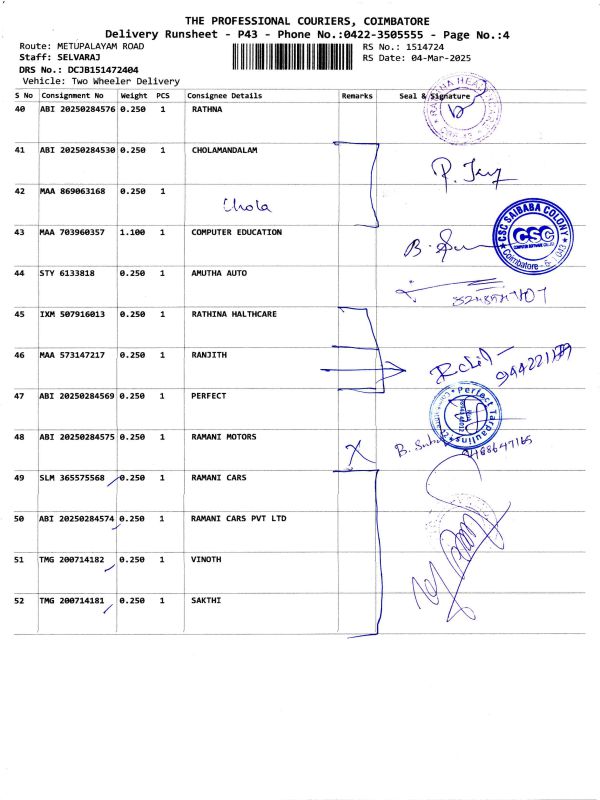 THE PROFESSIONAL COURIERS, COIMBATORE
Delivery Runsheet - P43 - Phone No.:0422-3505555 - Page No.:4
Route: METUPALAYAM ROAD
RS No.: 1514724
Staff: SELVARAJ
RS Date: 04-Mar-2025
DRS No.: DCJB151472404
Vehicle: Two Wheeler Delivery
S No Consignment No Weight PCS Consignee Details Remarks Seal & Signature
40 ABI 20250284576 0.250 1 RATHNA
41 ABI 20250284530 0.250 1 CHOLAMANDALAM
42 MAA 869063168 0.250 1
Chola
43 MAA 703960357 1.100 1 COMPUTER EDUCATION
CSC SAIBABA COLONY
CSC
COMPUTER SOFTWARE
Coimbatore
44 STY 6133818 0.250 1 AMUTHA AUTO
45 IXM 507916013 0.250 1 RATHINA HALTHCARE
46 MAA 573147217 0.250 1 RANJITH
47 ABI 20250284569 0.250 1 PERFECT
Perfect Tarpaulins
48 ABI 20250284575 0.250 1 RAMANI MOTORS
X
49 SLM 365575568 0.250 1 RAMANI CARS
50 ABI 20250284574 0.250 1 RAMANI CARS PVT LTD
51 TMG 200714182 0.250 1 VINOTH
52 TMG 200714181 0.250 1 SAKTHI